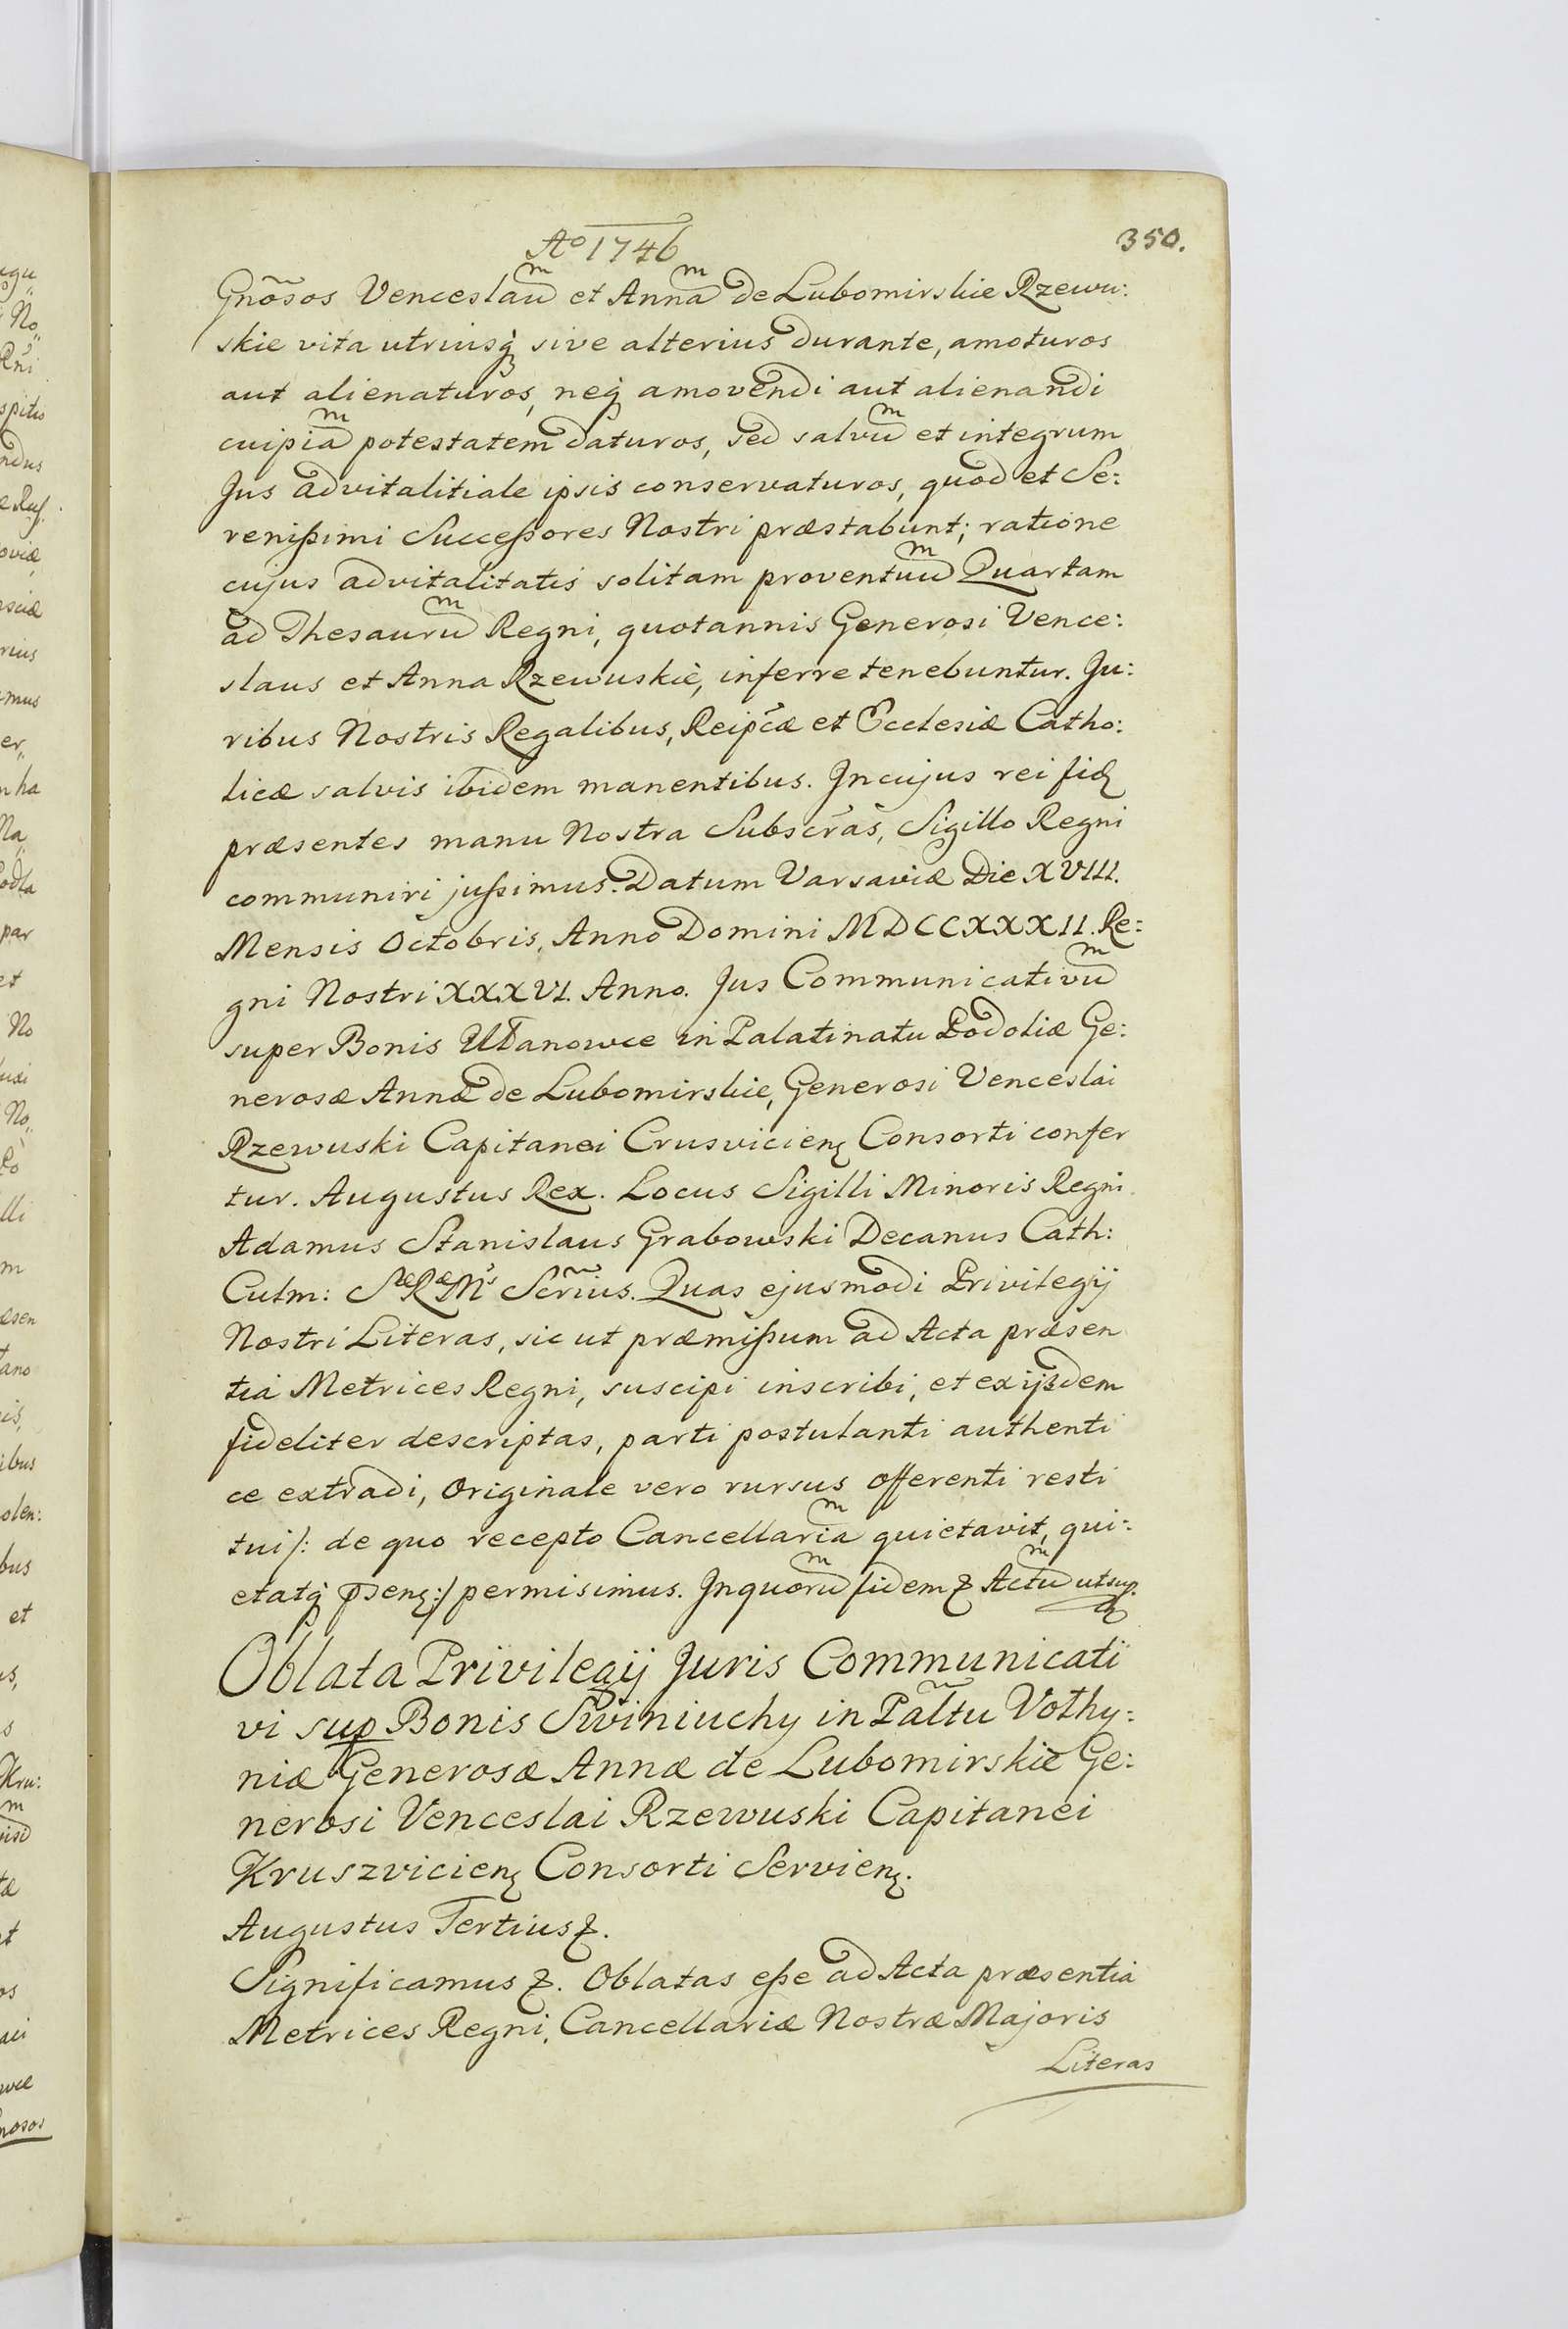 Aº 1746
350.
Gnõsos Venceslau͠m et Anna͠m de Lubomirskie Rzewu:
skie vita utriusq̨ sive alterius durante, amoturos
aut alienaturos, neq̨ amovendi aut alienandi
cuipia͠m potestatem daturos, sed salvu͠m et integrum
Jus advitalitiale ipsis conservaturos, quod et Se:
renißimi Succeßores Nostri præstabunt; ratione
cujus advitalitatis solitam proventuu͠m Quartam
ad Thesauru͠m Regni, quotannis Generosi Vence:
slaus et Anna Rzewuskie, inferre tenebuntur. Ju:
ribus Nostris Regalibus, Reipc̃æ et Ecclesiæ Catho:
licæ salvis ibidem manentibus. In cujus rei fid̨
præsentes manu Nostra Subscr̃as, Sigillo Regni
communiri jußimus. Datum Varsaviæ Die XVIII.
Mensis Octobris, Anno Domini MDCCXXXII. Re:
gni Nostri XXXVI. Anno. Jus Communicativu͠m
super Bonis Ułanowce in Palatinatu Podoliæ Ge:
nerosæ Annæ de Lubomirskie, Generosi Venceslai
Rzewuski Capitanei Crusvicien̨ Consorti confer
tur. Augustus Rex. Locus Sigilli Minoris Regni
Adamus Stanislaus Grabowski Decanus Cath:
Culm: Sæ Ræ Mis Scr̃ius. Quas ejusmodi Privilegij
Nostri Literas, sic ut præmißum ad Acta præsen
tia Metrices Regni, suscipi inscribi, et ex ijsdem
fideliter descriptas, parti postulanti authenti
ce extradi, Originale vero rursus offerenti resti
tui /: de quo recepto Cancellaria͠m quietavit, qui:
etatq̨ p̄sen̨ :/ permisimus. In quoru͠m fidem ꝛ Actu͠m ut sup.
Oblata Privilegij Juris Communicati
vi sup Bonis Swiniuchy in Pal̃tu Volhy:
niæ Generosæ Annæ de Lubomirskie Ge:
nerosi Venceslai Rzewuski Capitanei
Kruszvicien̨ Consorti Servien̨.
Augustus Tertius ꝛ.
Significamus ꝛ. Oblatas eße ad Acta præsentia
Metrices Regni, Cancellariæ Nostræ Majoris
Literas